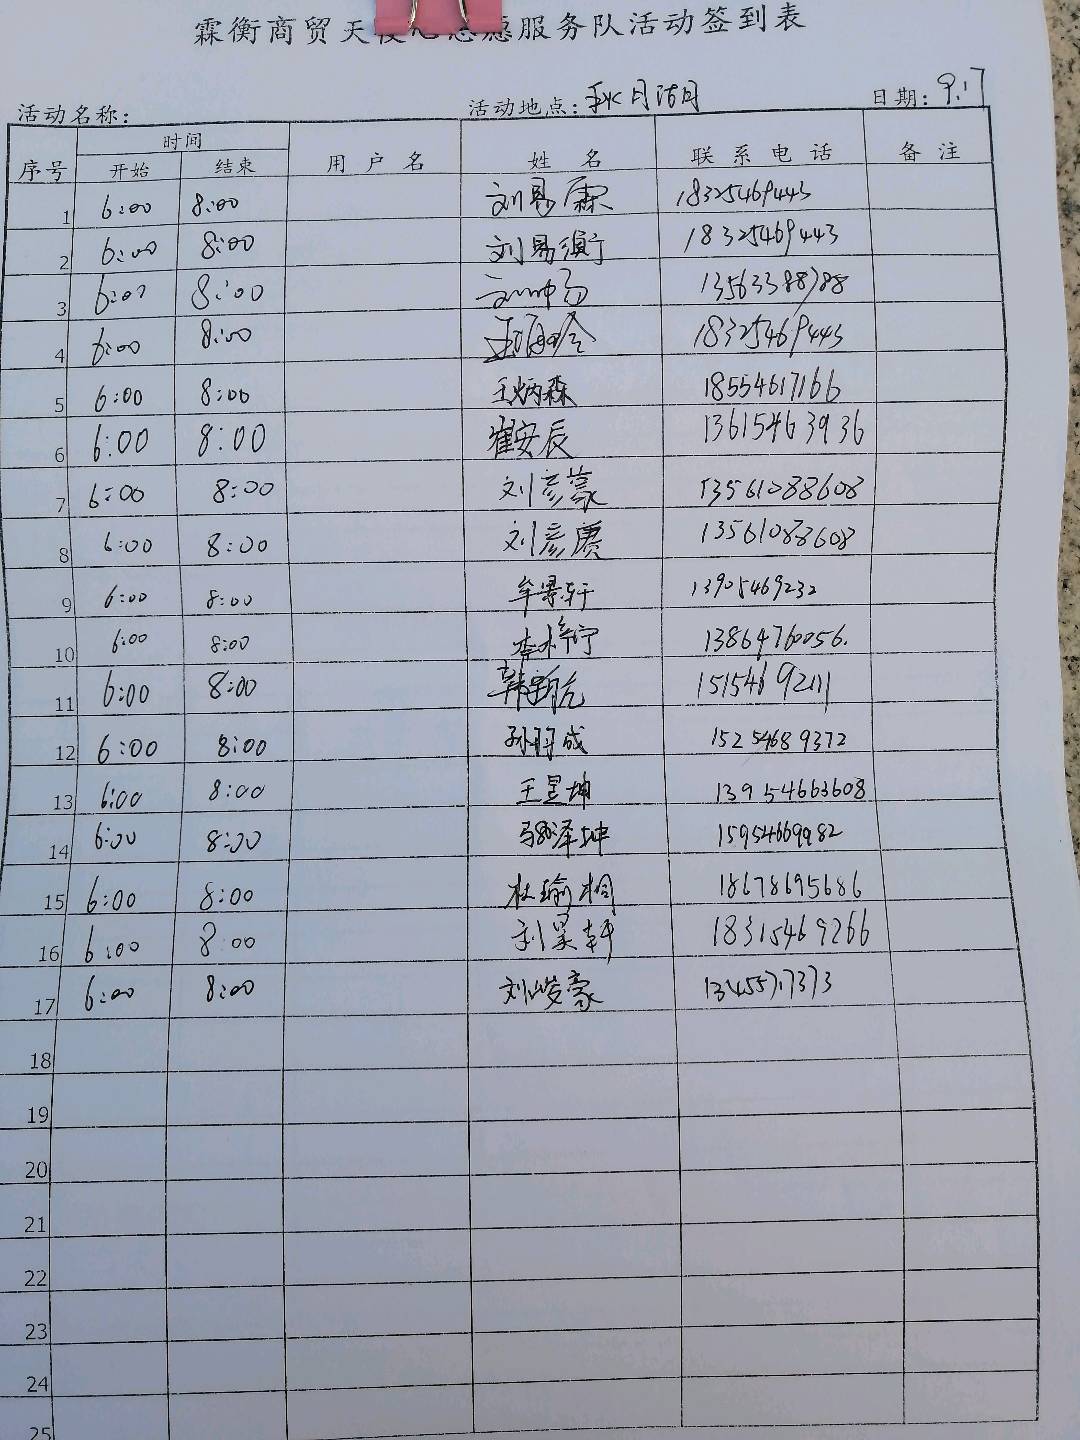 霖衡商贸天使心志愿服务队活动签到表
活动名称: 活动地点: 秋月湖 日期: 9.17
序号 时间 用户名 姓名 联系电话 备注
开始 结束
1 6:00 8:00 刘易霖 18325469443
2 6:00 8:00 刘易衡 18325469443
3 6:00 8:00 13563388788
4 6:00 8:00 18325469443
5 6:00 8:00 王炳森 18554617166
6 6:00 8:00 崔安辰 13615463936
7 6:00 8:00 刘彦蒙 13561088608
8 6:00 8:00 刘彦赓 13561088608
9 6:00 8:00 牟景轩 13905469232
10 6:00 8:00 李梓宁 13864760056.
11 6:00 8:00 15154692111
12 6:00 8:00 孙将成 15254689372
13 6:00 8:00 王昱坤 13954663608
14 6:00 8:00 泽坤 15954669982
15 6:00 8:00 杜瑜桐 18678695686
16 6:00 8:00 刘昊轩 18315469266
17 6:00 8:00 刘峻豪 13455717373
18
19
20
21
22
23
24
25